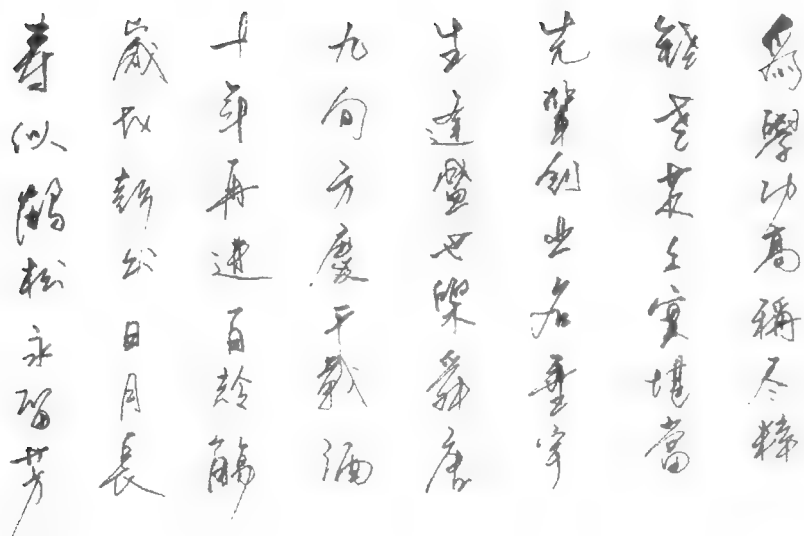 為學功高稱尽粹
錢老實堪當
先輩創业名垂宇
生逢盛世樂舜唐
九旬方慶千載酒
十年再百齡觴
歲彭公日月長
壽似鶴松永留芳